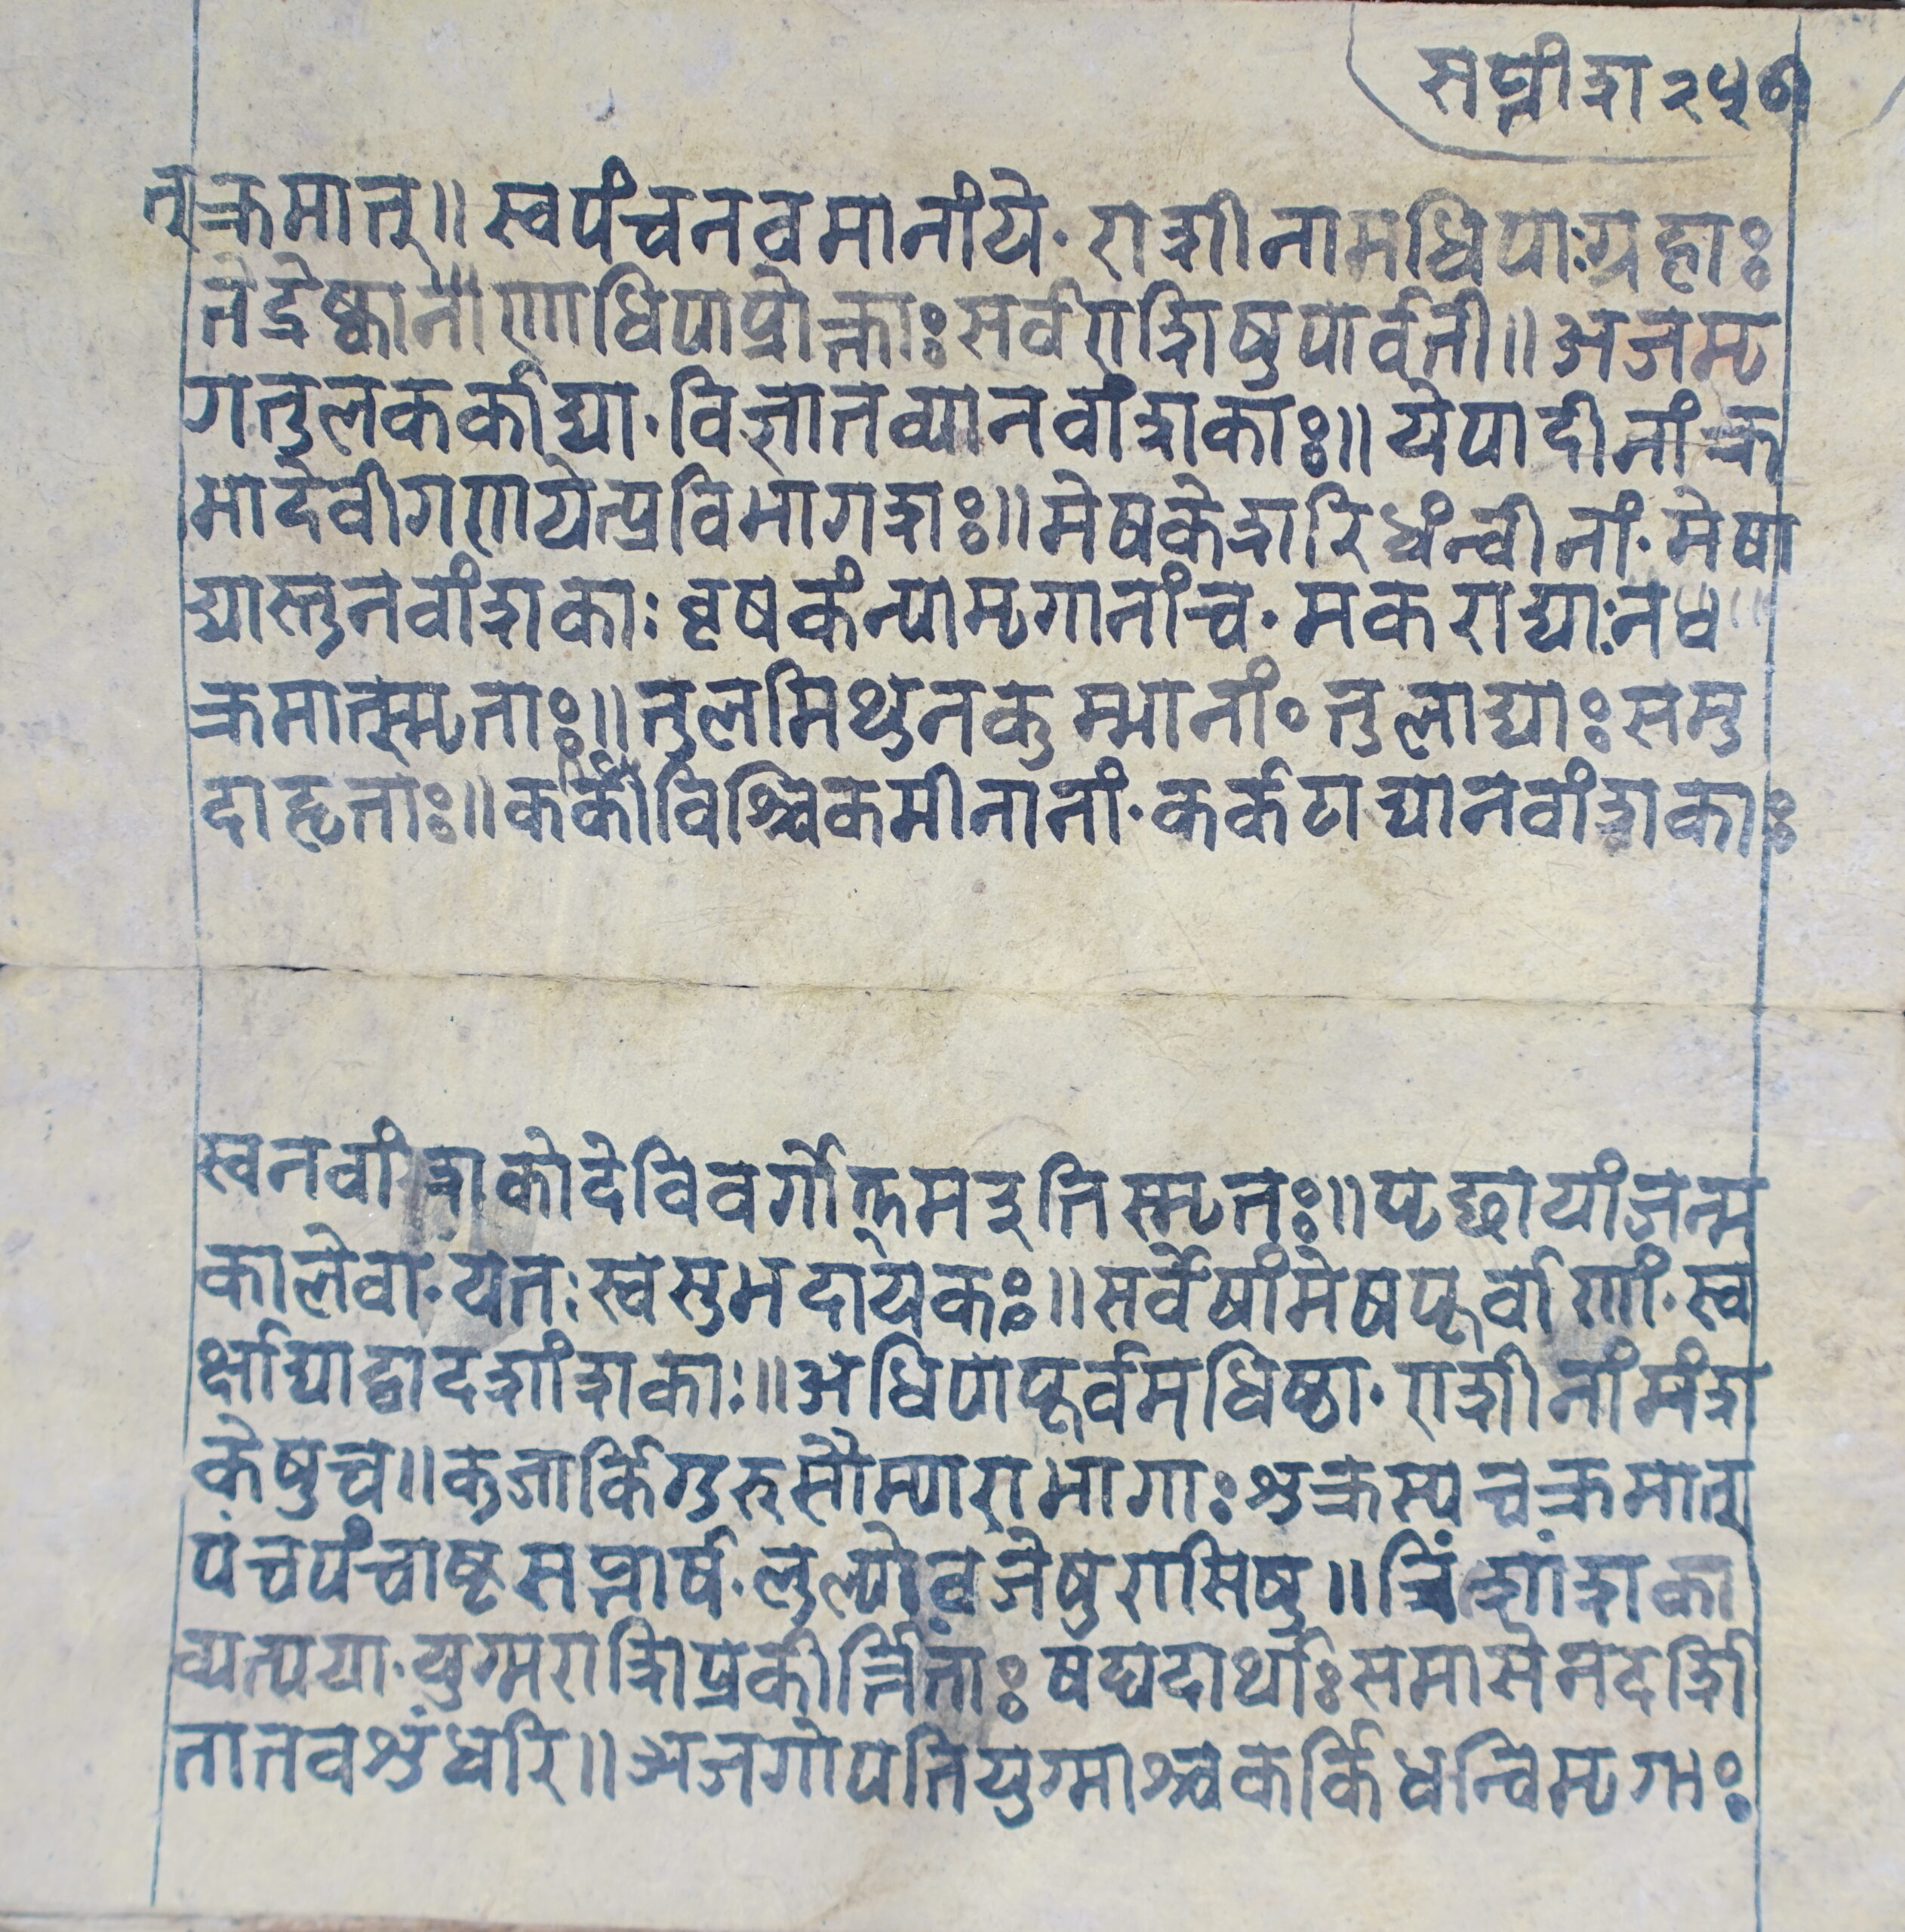 सप्नीशा २५७
त्क्रमात्॥ स्वपंचनवमानांये· राशीनामधिपाःग्रहाः
तेद्रेष्काणाधिपाप्रोक्ताः सर्वराशिषुपार्वती॥ अजमृ
गतुलकर्काद्या· विज्ञातव्यानवांशकाः॥ येपादीनांक्र
मादेवीगणयेत्प्रविभागशः॥ मेषकेशरिधंन्वीनां· मेषा
द्यास्तुनवांशकाः वृषकंन्यामृगानांच· मकराद्याःनव
क्रमात्स्मृताः॥ तुलमिथुनकुम्भानां॰ तुलाद्याः समु
दाहृताः॥ कर्कीविश्चिकमीनानां· कर्कटाद्यानवांशकाः
स्वनवांशकोदेविवर्गोत्तमइतिस्मृतः॥ पृछायांजन्म
कालेवा· यतः स्वसुभदायकः॥ सर्वेषांमेषपूर्वाणां· स्व
र्क्षाद्याद्वादशांशकाः॥ अधिपापूर्वमधिष्ठा· राशीनांमंश
केषुच॥ कुजार्किगुरुसौम्यारा भागाः शुक्रस्यचक्रमात्
पंचपंचाष्टसप्तार्ष· तुल्योवजेषुरासिषु॥ त्रिंशांशका
व्यत्यया· युग्मराशिप्रकीर्त्तिताः षंद्यदार्थाः समासेनदर्शि
तातवशुंधरि॥ अजगोपतियुग्माश्चकर्किधन्विमृगाः